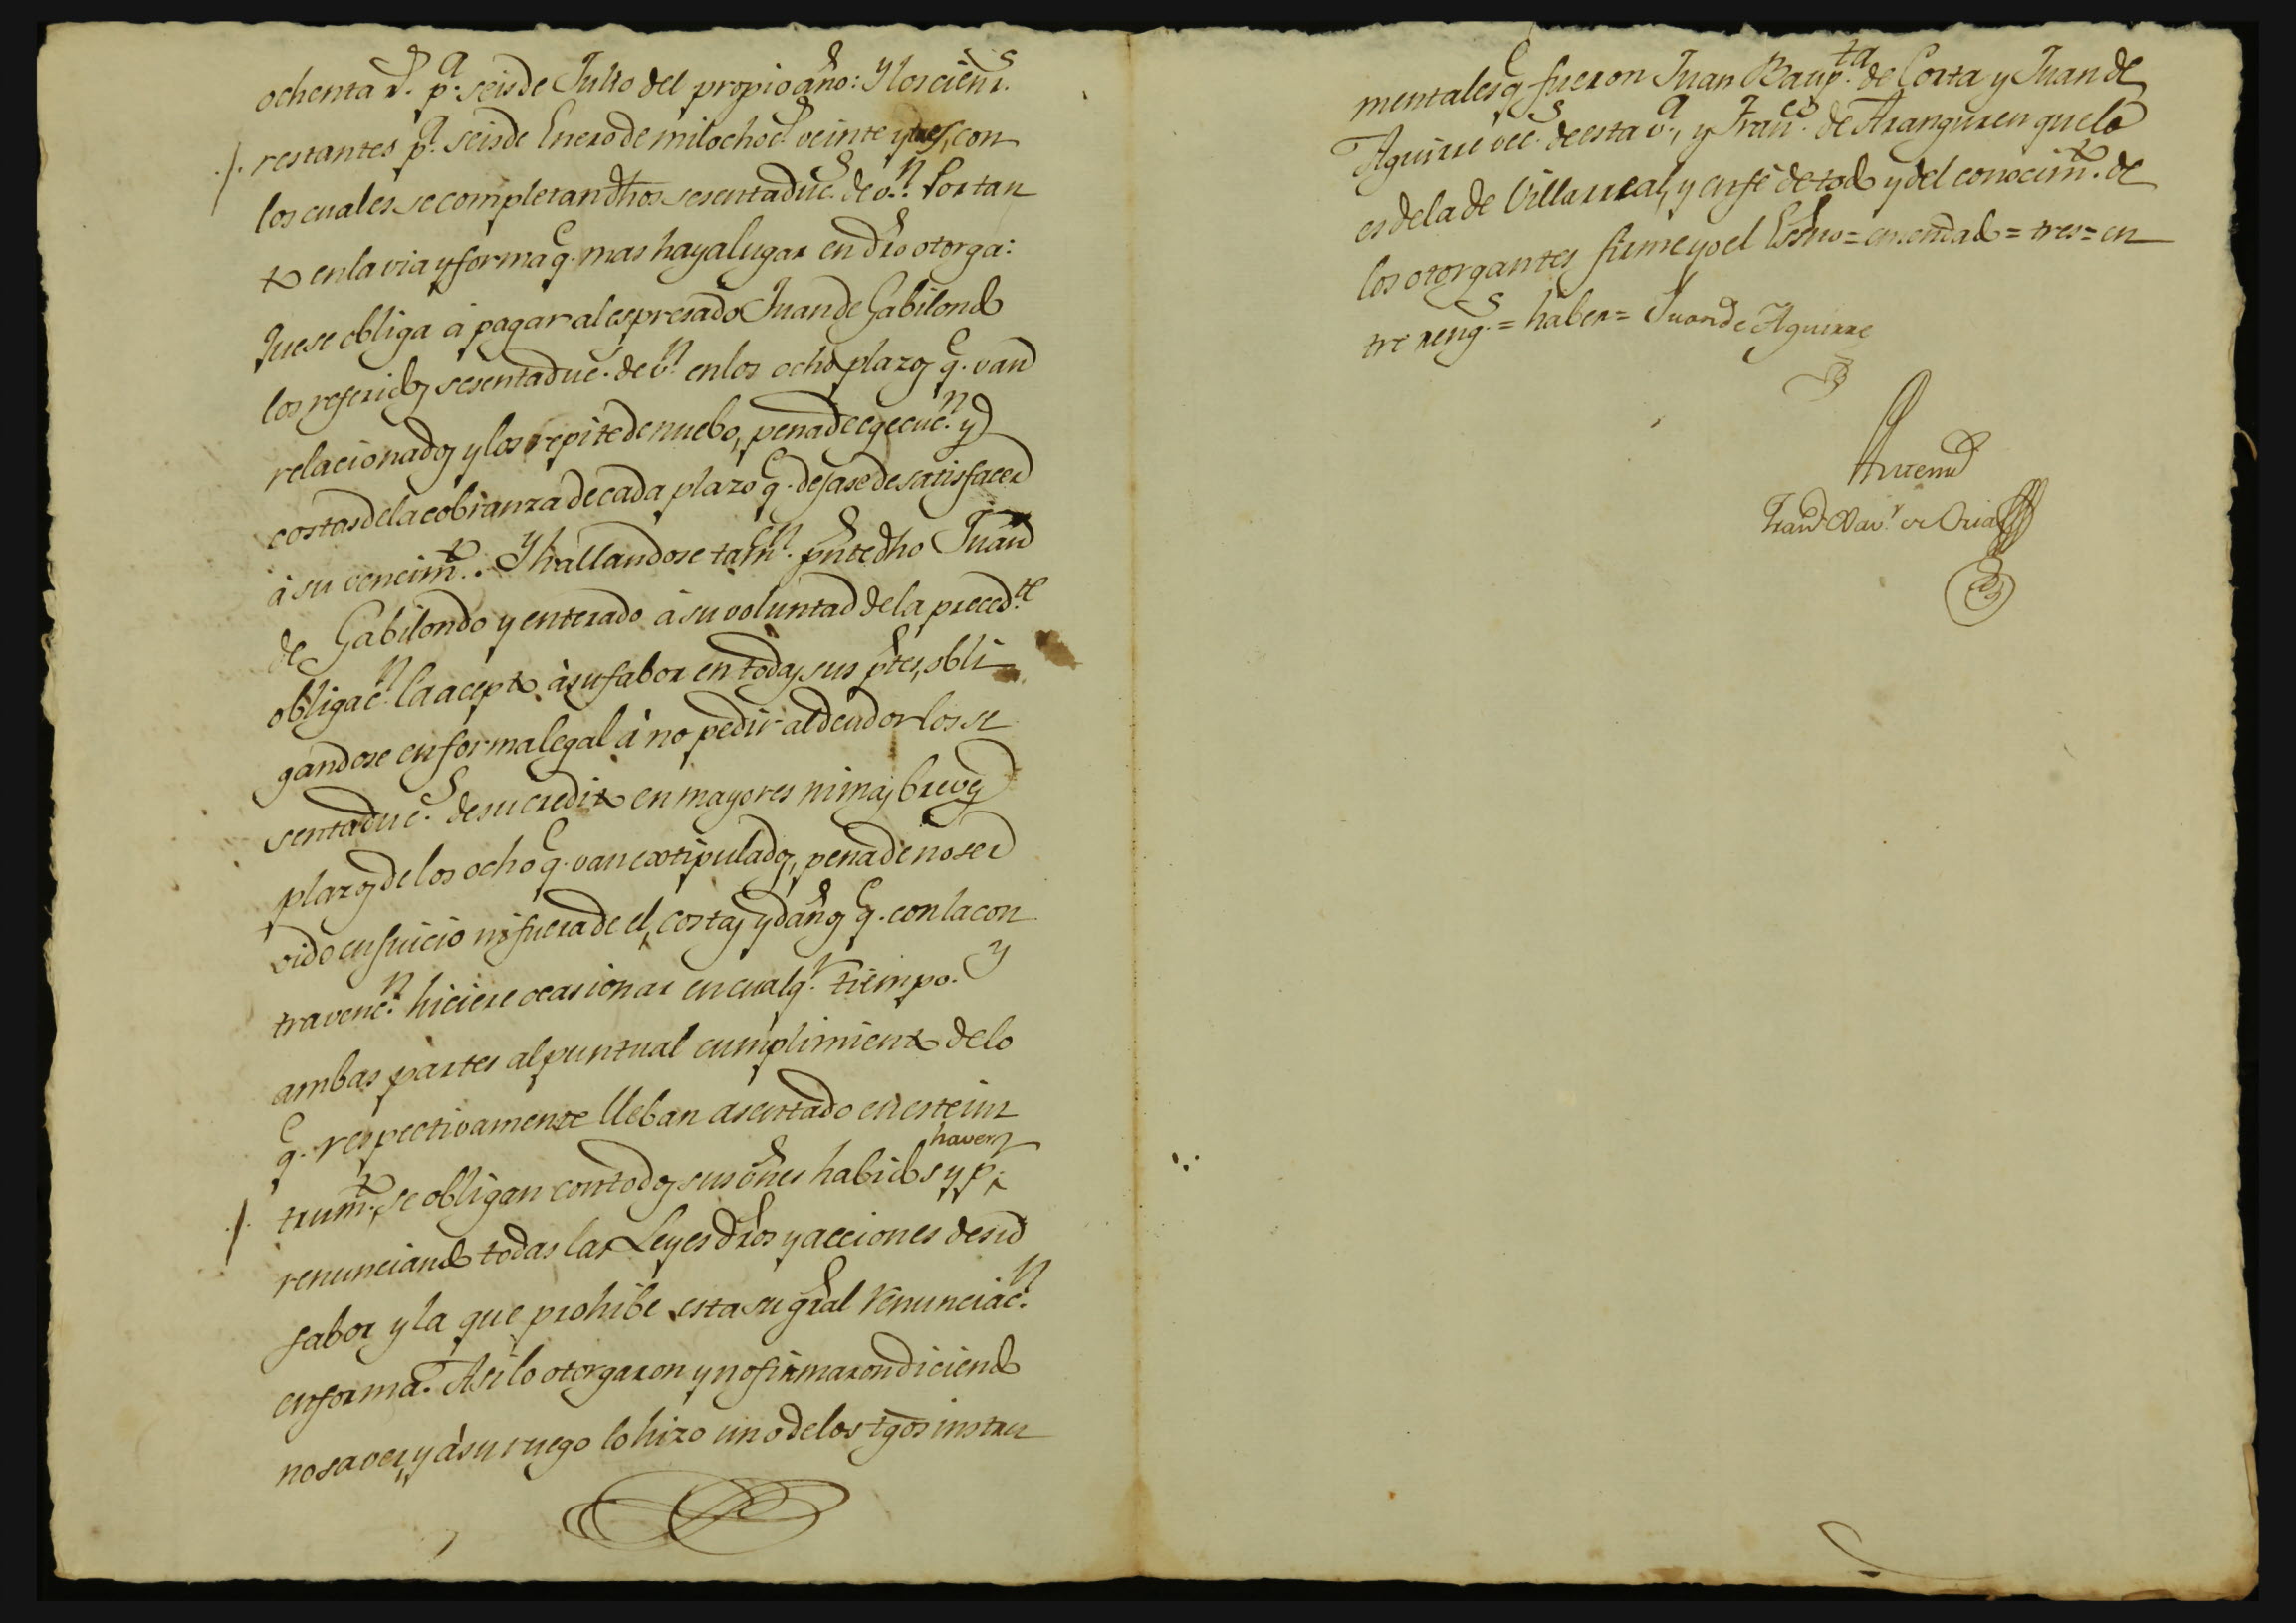 ochenta r.s p.a seis de Julio del propio año: Y los cien r.s
restantes p.a seis de Enero de mil ochoc.s veinte y tres, con
los cuales se completan dhos sesenta duc.s de v.n Por tan
to en la via y forma q.e mas haya lugar en dro otorga:
Que se obliga á pagar al espresado Juan de Gabilondo
los referidos sesenta duc.s de v.n en los ocho plazos q.e van
relacionados y los repite de nuebo, pena de egecuc.n y
costas de la cobranza de cada plazo q.e dejase de satisfacer
á su vencim.to. Y hallandose tamb.n pnte dho Juan
de Gabilondo y enterado á su voluntad de la preced.te
obligac.n la acepto á su fabor en todas sus ptes, obli
gandose en forma legal á no pedir al deudor los se
senta duc.s de su credito en mayores ni mas breves
plazos de los ocho q.e van extipulados, pena de no ser
oido en juicio ni fuera de el, costas y daños q.e con la con
travenc.n hiciere ocasionar en cualq.r tiempo. Y
ambas partes al puntual cumplimiento de lo
q.e respectivamente lleban asentado en este ins
trum.to, se obligan con todos sus vnes habidos y p.r
haver
renunciando todas las Leyes dros y acciones de su
fabor y la que prohibe esta su gral renunciac.n
en forma. Asi lo otorgaron y no firmaron diciendo
no saver, y á su ruego lo hizo uno de los tgos instru
mentales q.e fueron Juan Baup.ta de Corta y Juan de
Aguirre vec.s de esta v.a, y Fran.co de Aranguren que lo
es de la de Villarreal, y en fé de todo y del conocim.to de
los otorgantes firme yo el Essno = enmendado = tres = en
tre reng.s = haber = Juan de Aguirre
Antemi
Fran.co Xav.r de Oria